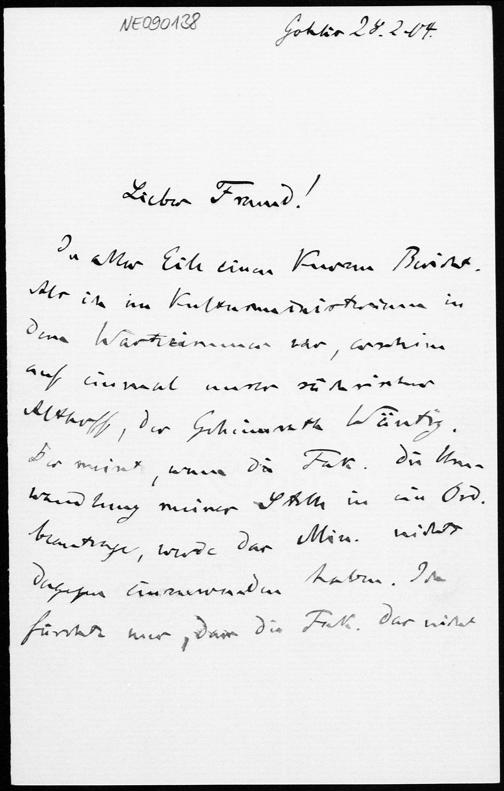 NE090138
Gohlis 28.2.04.
Lieber Freund!
In aller Eile einen kurzen Bericht.
Als ich im Kultusministerium in
dem Wartezimmer war, erschien
auf einmal unser sächsischer
Althoff, der Geheimrath Wäntig.
Der meint, wenn die Fak. die Um-
wandlung meiner Stelle in ein Ord.
beantrage, werde das Min. nichts
dagegen einzuwenden haben. Ich
fürchte nur, dass die Fak. das nicht